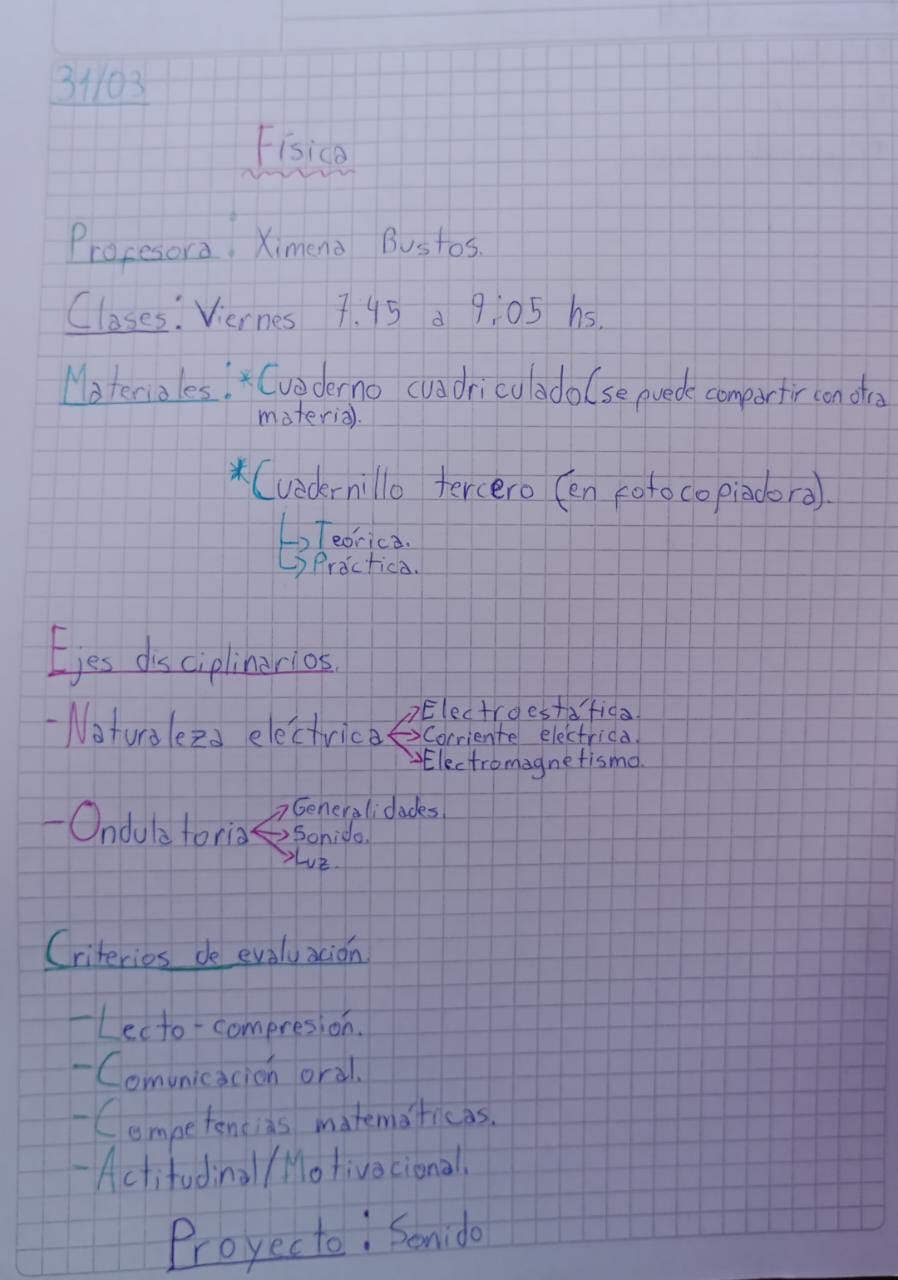 31/03
Física
Profesora: Ximena Bustos.
Clases: Viernes 7.45 a 9:05 hs.
Materiales: *Cuaderno cuadriculado (se puede compartir con otra
materia).
*Cuadernillo tercero (en fotocopiadora).
↳Teórica.
↳Práctica.
Ejes disciplinarios.
-Naturaleza eléctrica
→Electroestática.
→Corriente eléctrica.
→Electromagnetismo.
-Ondulatoria
→Generalidades.
→Sonido.
→Luz.
Criterios de evaluación.
-Lecto-compresión.
-Comunicación oral.
-Competencias matemáticas.
-Actitudinal/Motivacional.
Proyecto: Sonido